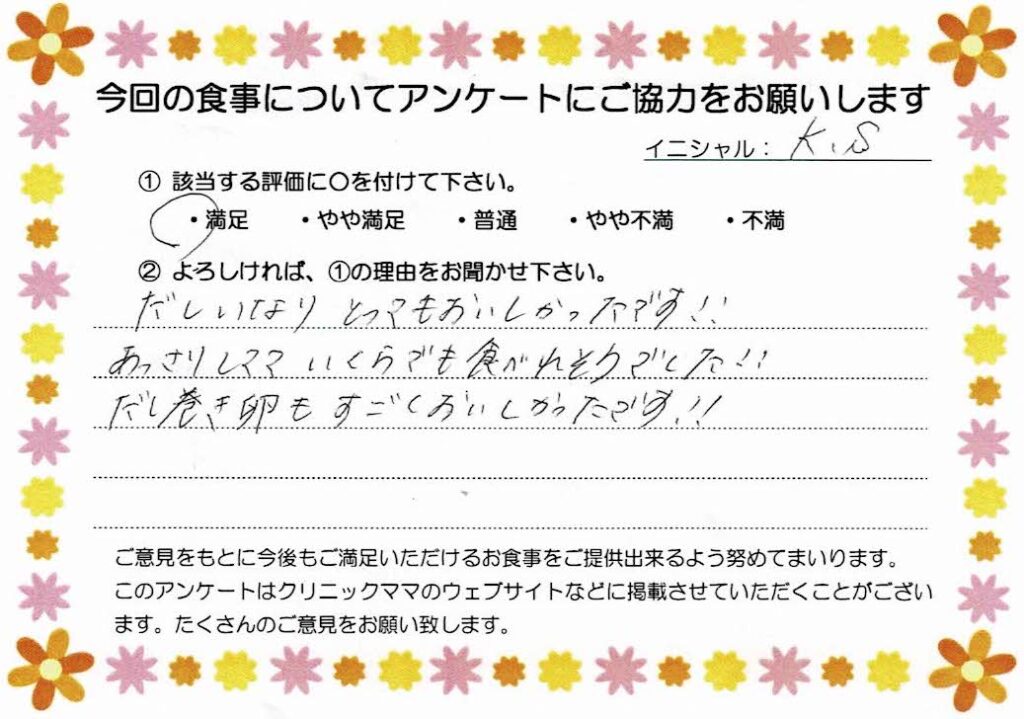 今回の食事についてアンケートにご協力をお願いします
イニシャル： K.S
① 該当する評価に〇を付けて下さい。
・満足　・やや満足　・普通　・やや不満　・不満
② よろしければ、①の理由をお聞かせ下さい。
だしいなり とってもおいしかったです!!
あっさりしてて いくらでも食べれそうでした!!
だし巻き卵も すごくおいしかったです!!
ご意見をもとに今後もご満足いただけるお食事をご提供出来るよう努めてまいります。
このアンケートはクリニックママのウェブサイトなどに掲載させていただくことがござい
ます。たくさんのご意見をお願い致します。